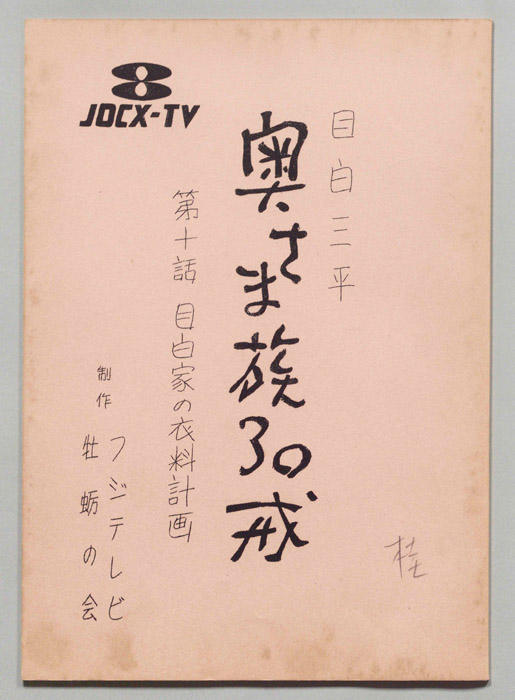 JOCX-TV
目白三平
奥さま族30戒
第十話 目白家の衣料計画
制作
フジテレビ
牡蛎の会
桂